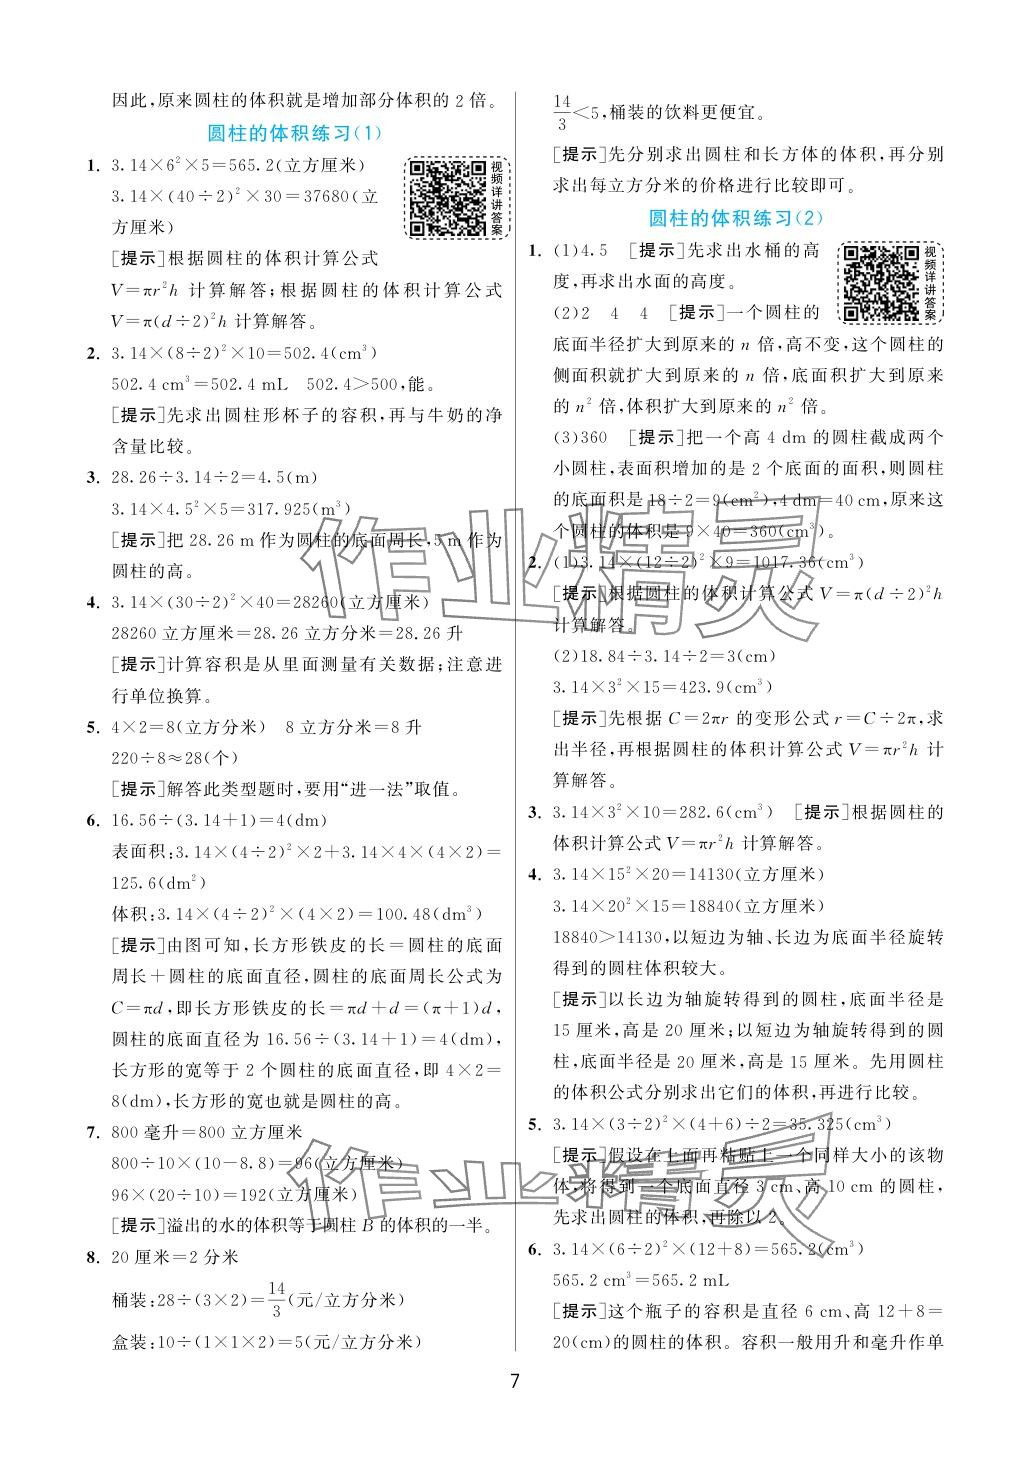 因此,原来圆柱的体积就是增加部分体积的 2 倍。
圆柱的体积练习(1)
1. 3.14×6²×5=565.2(立方厘米)
3.14×(40÷2)²×30=37680(立
方厘米)
视频详讲答案
[提示]根据圆柱的体积计算公式
V=πr²h 计算解答;根据圆柱的体积计算公式
V=π(d÷2)²h 计算解答。
2. 3.14×(8÷2)²×10=502.4(cm³)
502.4 cm³=502.4 mL 502.4>500,能。
[提示]先求出圆柱形杯子的容积,再与牛奶的净
含量比较。
3. 28.26÷3.14÷2=4.5(m)
3.14×4.5²×5=317.925(m³)
[提示]把 28.26 m 作为圆柱的底面周长,5 m 作为
圆柱的高。
4. 3.14×(30÷2)²×40=28260(立方厘米)
28260 立方厘米=28.26 立方分米=28.26 升
[提示]计算容积是从里面测量有关数据;注意进
行单位换算。
5. 4×2=8(立方分米) 8 立方分米=8 升
220÷8≈28(个)
[提示]解答此类型题时,要用“进一法”取值。
6. 16.56÷(3.14+1)=4(dm)
表面积:3.14×(4÷2)²×2+3.14×4×(4×2)=
125.6(dm²)
体积:3.14×(4÷2)²×(4×2)=100.48(dm³)
[提示]由图可知,长方形铁皮的长=圆柱的底面
周长+圆柱的底面直径,圆柱的底面周长公式为
C=πd,即长方形铁皮的长=πd+d=(π+1)d,
圆柱的底面直径为 16.56÷(3.14+1)=4(dm),
长方形的宽等于 2 个圆柱的底面直径,即 4×2=
8(dm),长方形的宽也就是圆柱的高。
7. 800 毫升=800 立方厘米
800÷10×(10-8.8)=96(立方厘米)
96×(20÷10)=192(立方厘米)
[提示]溢出的水的体积等于圆柱 B 的体积的一半。
8. 20 厘米=2 分米
桶装:28÷(3×2)=14/3(元/立方分米)
盒装:10÷(1×1×2)=5(元/立方分米)
14/3<5,桶装的饮料更便宜。
[提示]先分别求出圆柱和长方体的体积,再分别
求出每立方分米的价格进行比较即可。
圆柱的体积练习(2)
1. (1)4.5 [提示]先求出水桶的高
度,再求出水面的高度。
视频详讲答案
(2)2 4 4 [提示]一个圆柱的
底面半径扩大到原来的 n 倍,高不变,这个圆柱的
侧面积就扩大到原来的 n 倍,底面积扩大到原来
的 n² 倍,体积扩大到原来的 n² 倍。
(3)360 [提示]把一个高 4 dm 的圆柱截成两个
小圆柱,表面积增加的是 2 个底面的面积,则圆柱
的底面积是 18÷2=9(cm²),4 dm=40 cm,原来这
个圆柱的体积是 9×40=360(cm³)。
2. (1)3.14×(12÷2)²×9=1017.36(cm³)
[提示]根据圆柱的体积计算公式 V=π(d÷2)²h
计算解答。
(2)18.84÷3.14÷2=3(cm)
3.14×3²×15=423.9(cm³)
[提示]先根据 C=2πr 的变形公式 r=C÷2π,求
出半径,再根据圆柱的体积计算公式 V=πr²h 计
算解答。
3. 3.14×3²×10=282.6(cm³) [提示]根据圆柱的
体积计算公式 V=πr²h 计算解答。
4. 3.14×15²×20=14130(立方厘米)
3.14×20²×15=18840(立方厘米)
18840>14130,以短边为轴、长边为底面半径旋转
得到的圆柱体积较大。
[提示]以长边为轴旋转得到的圆柱,底面半径是
15 厘米,高是 20 厘米;以短边为轴旋转得到的圆
柱,底面半径是 20 厘米,高是 15 厘米。先用圆柱
的体积公式分别求出它们的体积,再进行比较。
5. 3.14×(3÷2)²×(4+6)÷2=35.325(cm³)
[提示]假设在上面再粘贴上一个同样大小的该物
体,将得到一个底面直径 3 cm、高 10 cm 的圆柱,
先求出圆柱的体积,再除以 2。
6. 3.14×(6÷2)²×(12+8)=565.2(cm³)
565.2 cm³=565.2 mL
[提示]这个瓶子的容积是直径 6 cm、高 12+8=
20(cm)的圆柱的体积。容积一般用升和毫升作单
作业精灵
作业精灵
7